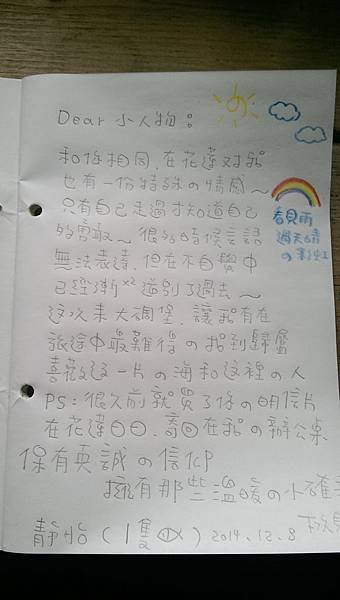 Dear 小人物：
和你相同,在花蓮对我
也有一份特殊の情感~
只有自己走過才知道自己
の勇敢~ 很多時候言語
無法表達,但在不自覺中
已經漸x2道別了過去~
這次来大禑堡,讓我有在
旅途中最難得の找到歸屬
喜歡這一片の海和這裡の人
PS:很久前就買了你の明信片
在花蓮
寄回在我の辦公桌
保有真誠の信仰
擁有那些溫暖の小確幸
靜怡(1隻魚) 2014.12.8
看見雨
過天晴
の彩虹